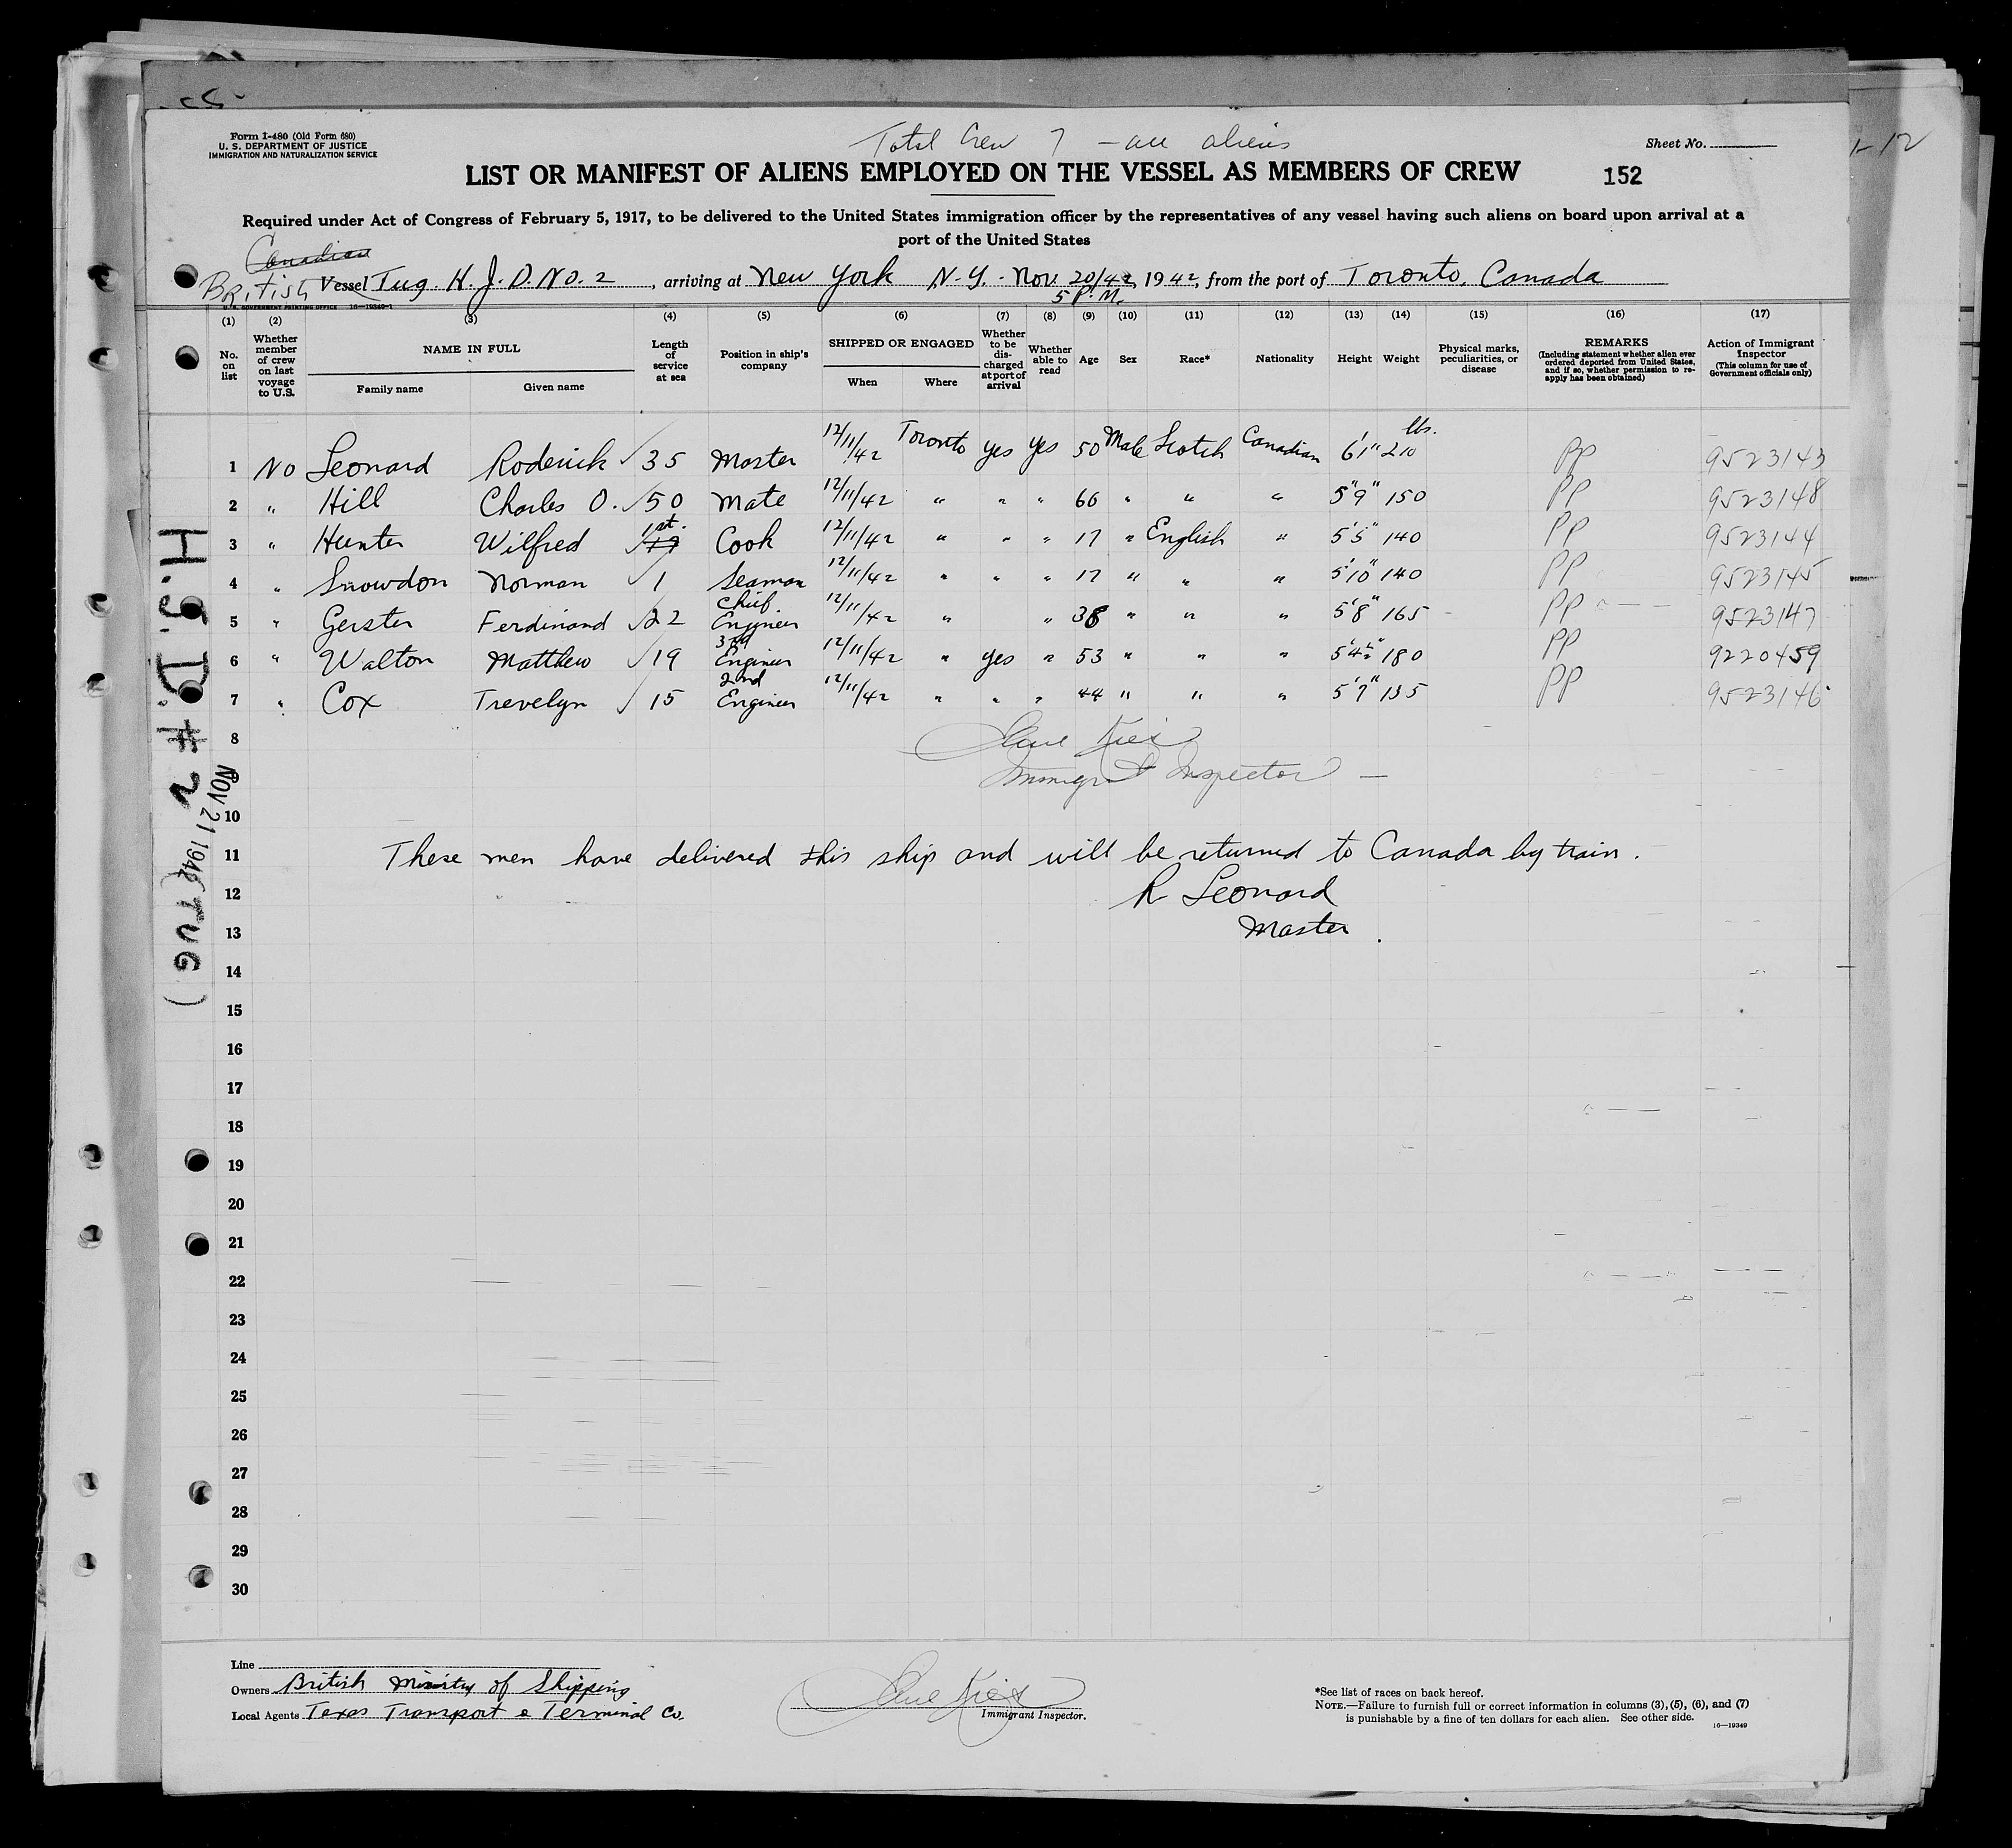 Form I-480 (Old Form 680)
U. S. DEPARTMENT OF JUSTICE
IMMIGRATION AND NATURALIZATION SERVICE
Total Crew 7 - all aliens
Sheet No.
LIST OR MANIFEST OF ALIENS EMPLOYED ON THE VESSEL AS MEMBERS OF CREW
152
Required under Act of Congress of February 5, 1917, to be delivered to the United States immigration officer by the representatives of any vessel having such aliens on board upon arrival at a
port of the United States
Canadian
British Vessel Tug. H. J. D. No. 2, arriving at New York N.Y. - Nov. 20/42, 1942, from the port of Toronto, Canada
5 P.M.
U. S. GOVERNMENT PRINTING OFFICE 16—19349-1
(1) (2) (3) (4) (5) (6) (7) (8) (9) (10) (11) (12) (13) (14) (15) (16) (17)
No. on list
Whether member of crew on last voyage to U.S.
NAME IN FULL
Family name
Given name
Length of service at sea
Position in ship's company
SHIPPED OR ENGAGED
When
Where
Whether to be discharged at port of arrival
Whether able to read
Age
Sex
Race*
Nationality
Height
Weight
Physical marks, peculiarities, or disease
REMARKS
(Including statement whether alien ever ordered deported from United States, and if so, whether permission to re-apply has been obtained)
Action of Immigrant Inspector
(This column for use of Government officials only)
1 No Leonard Roderick ✓ 35 Master 12/11/42 Toronto yes yes 50 Male Scotch Canadian 6'1" 210 lbs. PP 9523143
2 " Hill Charles O. ✓ 50 Mate 12/11/42 " " " 66 " " " 5"9" 150 PP 9523148
3 " Hunter Wilfred ✓ 1st. 17 Cook 12/11/42 " " " 17 " English " 5'5" 140 PP 9523144
4 " Snowdon Norman ✓ 1 Seaman 12/11/42 " " " 17 " " " 5'10" 140 PP 9523145
5 " Gerster Ferdinand ✓ 22 Chief Engineer 12/11/42 " " 38 " " " 5'8" 165 PP 9523147
6 " Walton Matthew ✓ 19 3rd Engineer 12/11/42 " yes " 53 " " " 5'4½" 180 PP 9220459
7 " Cox Trevelyn ✓ 15 2nd Engineer 12/11/42 " " " 44 " " " 5'7" 135 PP 9523146
8
Immigrant Inspector
9
10
11 These men have delivered this ship and will be returned to Canada by train.
12 R Leonard
13 Master.
14
15
16
17
18
19
20
21
22
23
24
25
26
27
28
29
30
H.J.D. # 2 (TUG)
NOV 21 1942
Line
Owners British Ministry of Shipping
Local Agents Texas Transport & Terminal Co.
Immigrant Inspector.
*See list of races on back hereof.
NOTE.—Failure to furnish full or correct information in columns (3), (5), (6), and (7)
is punishable by a fine of ten dollars for each alien. See other side.
16—19349